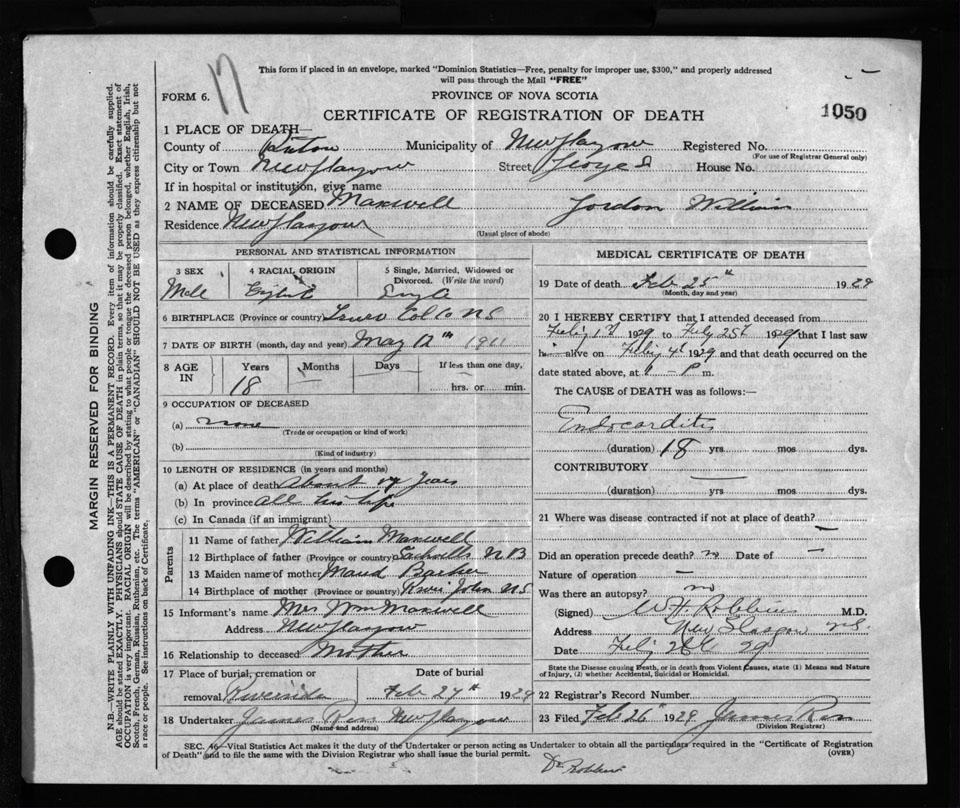 17
This form if placed in an envelope, marked "Dominion Statistics—Free, penalty for improper use, $300," and properly addressed
will pass through the Mail "FREE"
FORM 6.
PROVINCE OF NOVA SCOTIA
CERTIFICATE OF REGISTRATION OF DEATH
1050
1 PLACE OF DEATH—
County of Pictou Municipality of New Glasgow Registered No.
(For use of Registrar General only)
City or Town New Glasgow Street George St House No.
If in hospital or institution, give name
2 NAME OF DECEASED Maxwell Gordon William
Residence New Glasgow
(Usual place of abode)
PERSONAL AND STATISTICAL INFORMATION
3 SEX 4 RACIAL ORIGIN 5 Single, Married, Widowed or
Divorced. (Write the word)
Male English Single
6 BIRTHPLACE (Province or country) Truro Col Co NS
7 DATE OF BIRTH (month, day and year) May 1911
8 AGE IN Years Months Days If less than one day,
18 hrs. or min.
9 OCCUPATION OF DECEASED
(a) none
(Trade or occupation or kind of work)
(b)
(Kind of industry)
10 LENGTH OF RESIDENCE (in years and months)
(a) At place of death about 17 years
(b) In province all his life
(c) In Canada (if an immigrant)
Parents
11 Name of father William Maxwell
12 Birthplace of father (Province or country) Sackville NB
13 Maiden name of mother Maud Barker
14 Birthplace of mother (Province or country) River John NS
15 Informant's name Mrs Wm Maxwell
Address New Glasgow
16 Relationship to deceased Mother
17 Place of burial, cremation or Date of burial
removal Riverside Feb 27th 1929
18 Undertaker James Ross New Glasgow
(Name and address)
MEDICAL CERTIFICATE OF DEATH
19 Date of death Feb 25th 1929
(Month, day and year)
20 I HEREBY CERTIFY that I attended deceased from
Feby 1st 1929 to Feby 25th 1929 that I last saw
him alive on Feby 1929 and that death occurred on the
date stated above, at P m.
The CAUSE OF DEATH was as follows:—
Endocarditis
(duration) 18 yrs mos. dys.
CONTRIBUTORY
(duration) yrs. mos. dys.
21 Where was disease contracted if not at place of death? —
Did an operation precede death? no Date of —
Nature of operation —
Was there an autopsy? no
(Signed) W H Robbins M.D.
Address New Glasgow N.S.
Date Feby 26 29
State the Disease causing Death, or in death from Violent Causes, state (1) Means and Nature
of Injury, (2) whether Accidental, Suicidal or Homicidal.
22 Registrar's Record Number
23 Filed Feb 26th 1929 James Ross
(Division Registrar)
SEC. 46—Vital Statistics Act makes it the duty of the Undertaker or person acting as Undertaker to obtain all the particulars required in the "Certificate of Registration
of Death" and to file the same with the Division Registrar who shall issue the burial permit.
(OVER)
Dr Robbins
MARGIN RESERVED FOR BINDING
N.B.—WRITE PLAINLY WITH UNFADING INK—THIS IS A PERMANENT RECORD. Every item of information should be carefully supplied.
AGE should be stated EXACTLY. PHYSICIANS should STATE CAUSE OF DEATH in plain terms, so that it may be properly classified. Exact statement of
OCCUPATION is very important. RACIAL ORIGIN will be described by stating to what people or tongue the deceased person belonged, whether English, Irish,
Scotch, French, German, Russian, Ruthenian, etc. The terms "AMERICAN" or "CANADIAN" SHOULD NOT BE USED as they express citizenship but not
a race or people. See instructions on back of Certificate.